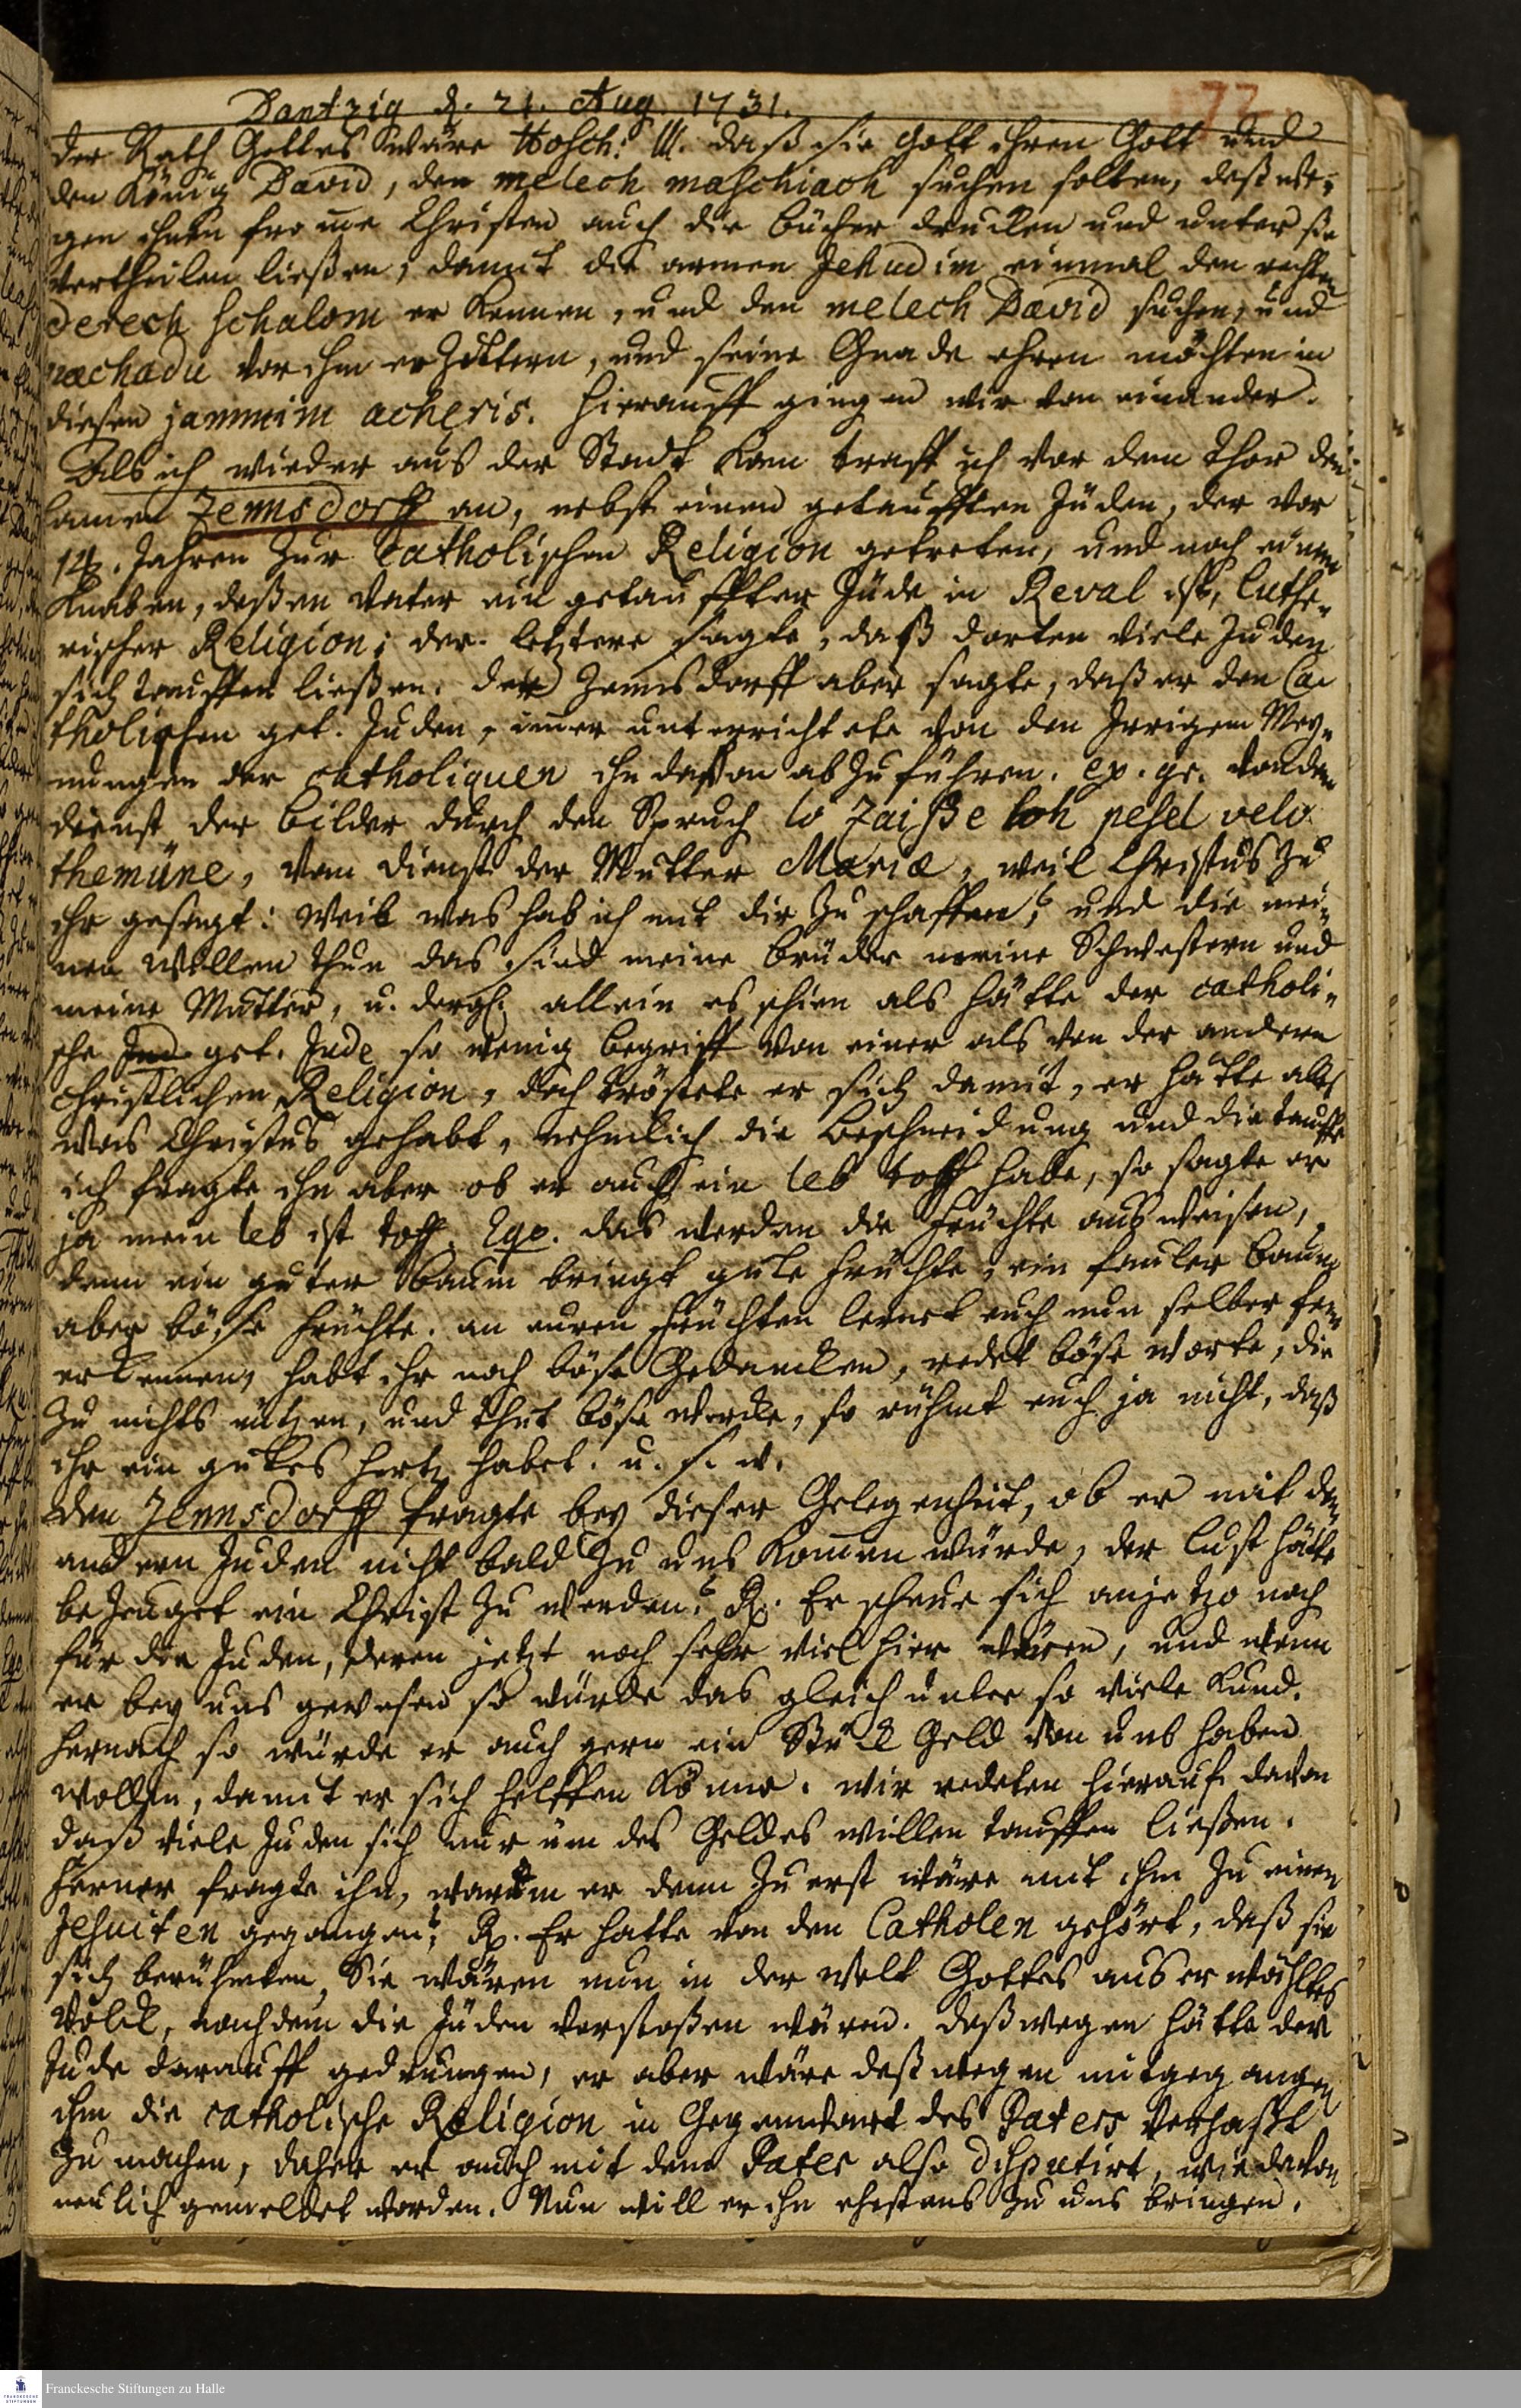 Dantzig d. 21. Aug. 1731.
72.
der Rath Gottes wäre Hosch: III. daß sie Gott ihren Gott und
den König David, den melech maschiach suchen solten, deßwe-
gen ihnen fromme Christen auch die bücher drucken und unter sie
vertheilen ließen, damit die armen Jehudim einmal den rechten
derech schalom erkennen, und den melech David suchen, und
pachadu vor ihm erzittern, und seine Gnade ehren möchten in
diesen jammim acheris. Hierauff gingen wir von einander.
Als ich wieder aus der Stadt kam traff ich vor dem Thor den
lamen Jennsdorff an, nebst einen getaufften Jüden, der vor
14. Jahren zur Catholischen Religion getreten, und noch einen
Knaben, deßen Vater ein getauffter Jüde in Reval ist, Luthe-
rischer Religion; der letztere sagte, daß dorten viele Juden
sich tauffen ließen. der Jennsdorff aber sagte, daß er den Ca-
tholischen get. Juden, immer unterrichtete von den Irrigen Mey-
nungen der catholiquen ihn davon abzuführen. ex. gr. von dem
dienst der bilder durch den Spruch lo zaiße loh pesel velo
themune, vom dienst der Mutter Mariæ, weil Christus zu
ihr gesagt: Weib was hab ich mit dir zu schaffen? und die mei-
nen Willen thun das sind meine brüder meine Schwestern und
meine Mutter, u. dergl. allein es schien als hätte der catholi-
sche Jud get. Jude so wenig begriff von einer als von der andern
christlichen Religion, doch tröstete er sich damit, er hätte alles
was Christus gehabt, nehmlich die beschneidung und die tauffe
ich fragte ihn aber ob er auch ein leb toff habe, so sagte er
ja mein leb ist toff. Ego. das werden die Früchte ausweisen,
denn ein guter baum bringt gute Früchte, ein fauler baum
aber böse Früchte. an euren Früchten lernet euch nun selber
erkennen, habt ihr noch böse Gedancken, redet böse Worte, die
zu nichts nützen, und thut böse Wercke, so rühmt euch ja nicht, daß
ihr ein gutes Hertz habet. u. s. w.
den Jennsdorff fragte bey dieser Gelegenheit, ob er mit dem
andern Juden nicht bald zu uns kommen würde, der Lust hätte
bezeuget ein Christ zu werden? Rx. Er scheue sich anjetzo noch
für den Juden, deren jetzt noch sehr viel hier wären, und wenn
er bey uns gewesen so würde das gleich unter so viele kund.
hernach so würde er auch gern ein Stück Geld von uns haben
wollen, damit er sich helffen könne. wir redeten hierauf davon
daß viele Juden sich nur um des Geldes willen tauffen ließen.
Ferner fragte ihn, warum er denn zuerst wäre mit ihm zu einen
Jesuiten gegangen? Rx. Er hatte von den Catholen gehört, daß sie
sich berühmten, Sie wären nun in der Welt Gottes auserwähltes
Volck, nachdem die Jüden verstoßen wären. Deßwegen hätte der
Jude darauff gedrungen, er aber wäre deßwegen mitgegangen
ihm die catholische Religion in Gegenwart des Paters verhaßt
zu machen, daher er auch mit dem Pater also disputirt, wie davon
neulich gemeldet worden. Nun will er ihn ehestens zu uns bringen.
Franckesche Stiftungen zu Halle